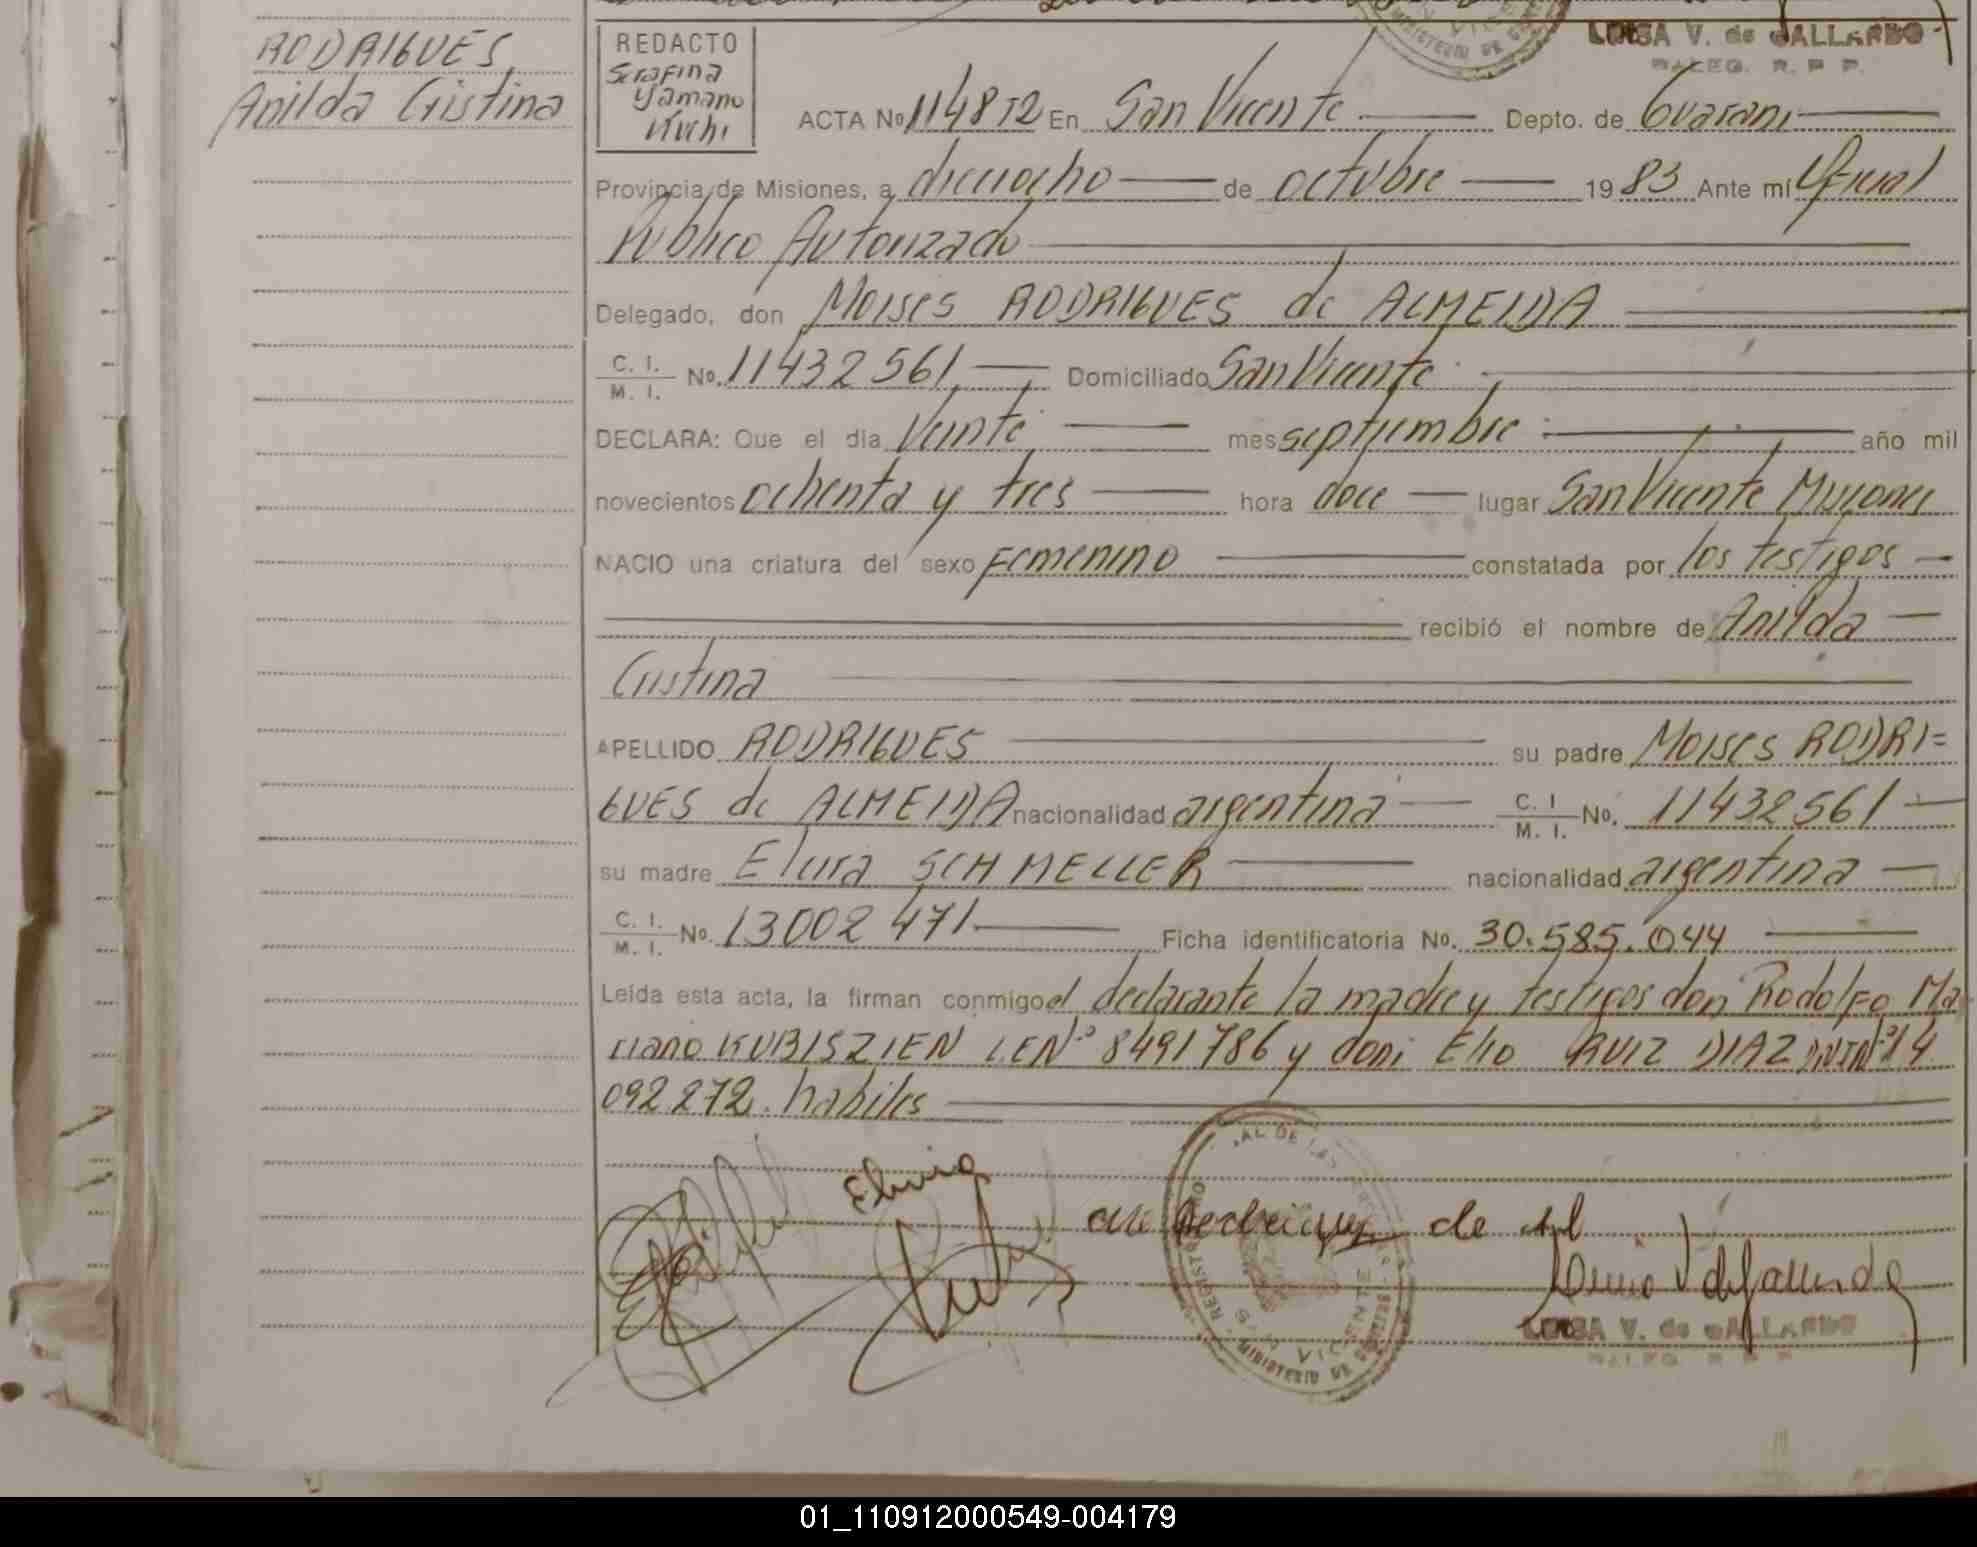 RODRIGUES
Anilda Cristina
LUISA V. de GALLARDO
REDACTO
Serafina
Yamano
Kichi
ACTA No 1148T2 En San Vicente Depto. de Guarani
Provincia de Misiones, a dieciocho de octubre 1983 Ante mí Oficial
Público Autorizado
Delegado, don Moises RODRIGUES de ALMEIDA
C. I.
M. I. No. 11432561 Domiciliado San Vicente
DECLARA: Que el dia Veinte mes septiembre año mil
novecientos ochenta y tres hora doce lugar San Vicente Misiones
NACIO una criatura del sexo Femenino constatada por los testigos
recibió el nombre de Anilda
Cristina
APELLIDO RODRIGUES su padre Moises RODRI=
GUES de ALMEIDA nacionalidad argentina C. I
M. I. No. 11432561
su madre Elvira SCHMELLER nacionalidad argentina
C. I.
M. I. No. 13002471 Ficha identificatoria No. 30.585.044
Leída esta acta, la firman conmigo el declarante la madre y testigos don Rodolfo Ma
riano KUBISZIEN L.E.Nº 8491786 y don Elio RUIZ DIAZ DNI Nº 14
092272. habiles
Elvira
Rodrigues de Al
Luisa V de Gallardo
LUISA V. de GALLARDO
REGISTRO
SAN VICENTE
MINISTERIO DE
01_110912000549-004179